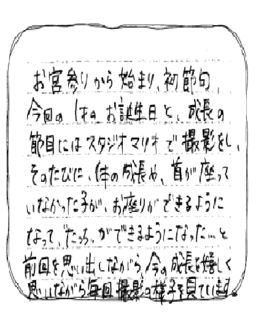 お宮参りから始まり、初節句、
今回の1才のお誕生日と、成長の
節目にはスタジオマリオで撮影をし、
そのたびに、体の成長や、首が座って
いなかった子が、お座りができるように
なって、"たっち"ができるようになった…と
前回を思い出しながら、今の成長を嬉しく
思いながら毎回撮影の様子を見ています。